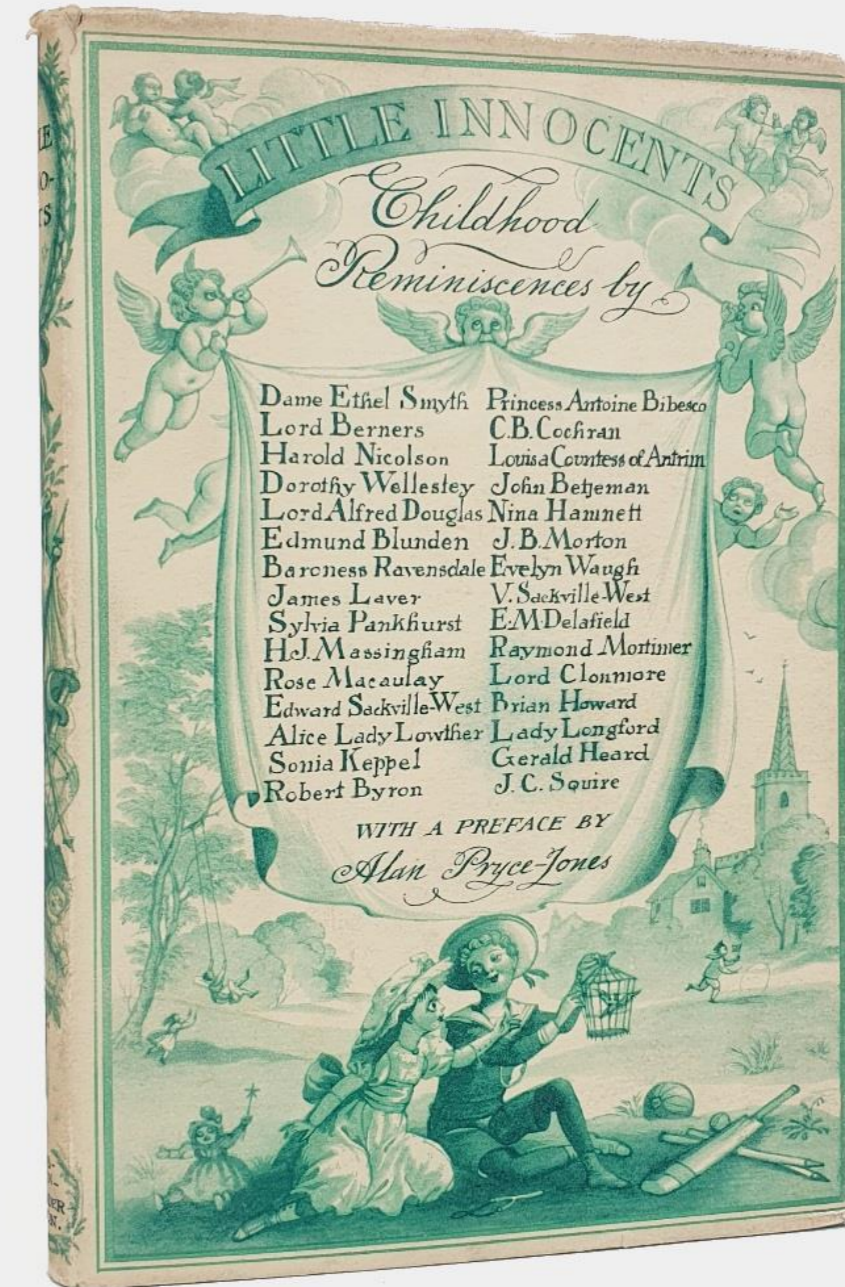 LITTLE INNOCENTS
Childhood
Reminiscences by
Dame Ethel Smyth
Lord Berners
Harold Nicolson
Dorothy Wellesley
Lord Alfred Douglas
Edmund Blunden
Baroness Ravensdale
James Laver
Sylvia Pankhurst
H.J. Massingham
Rose Macaulay
Edward Sackville-West
Alice Lady Lowther
Sonia Keppel
Robert Byron
Princess Antoine Bibesco
C.B. Cochran
Louisa Countess of Antrim
John Betjeman
Nina Hamnett
J.B. Morton
Evelyn Waugh
V. Sackville-West
E.M. Delafield
Raymond Mortimer
Lord Clonmore
Brian Howard
Lady Longford
Gerald Heard
J.C. Squire
WITH A PREFACE BY
Alan Pryce-Jones